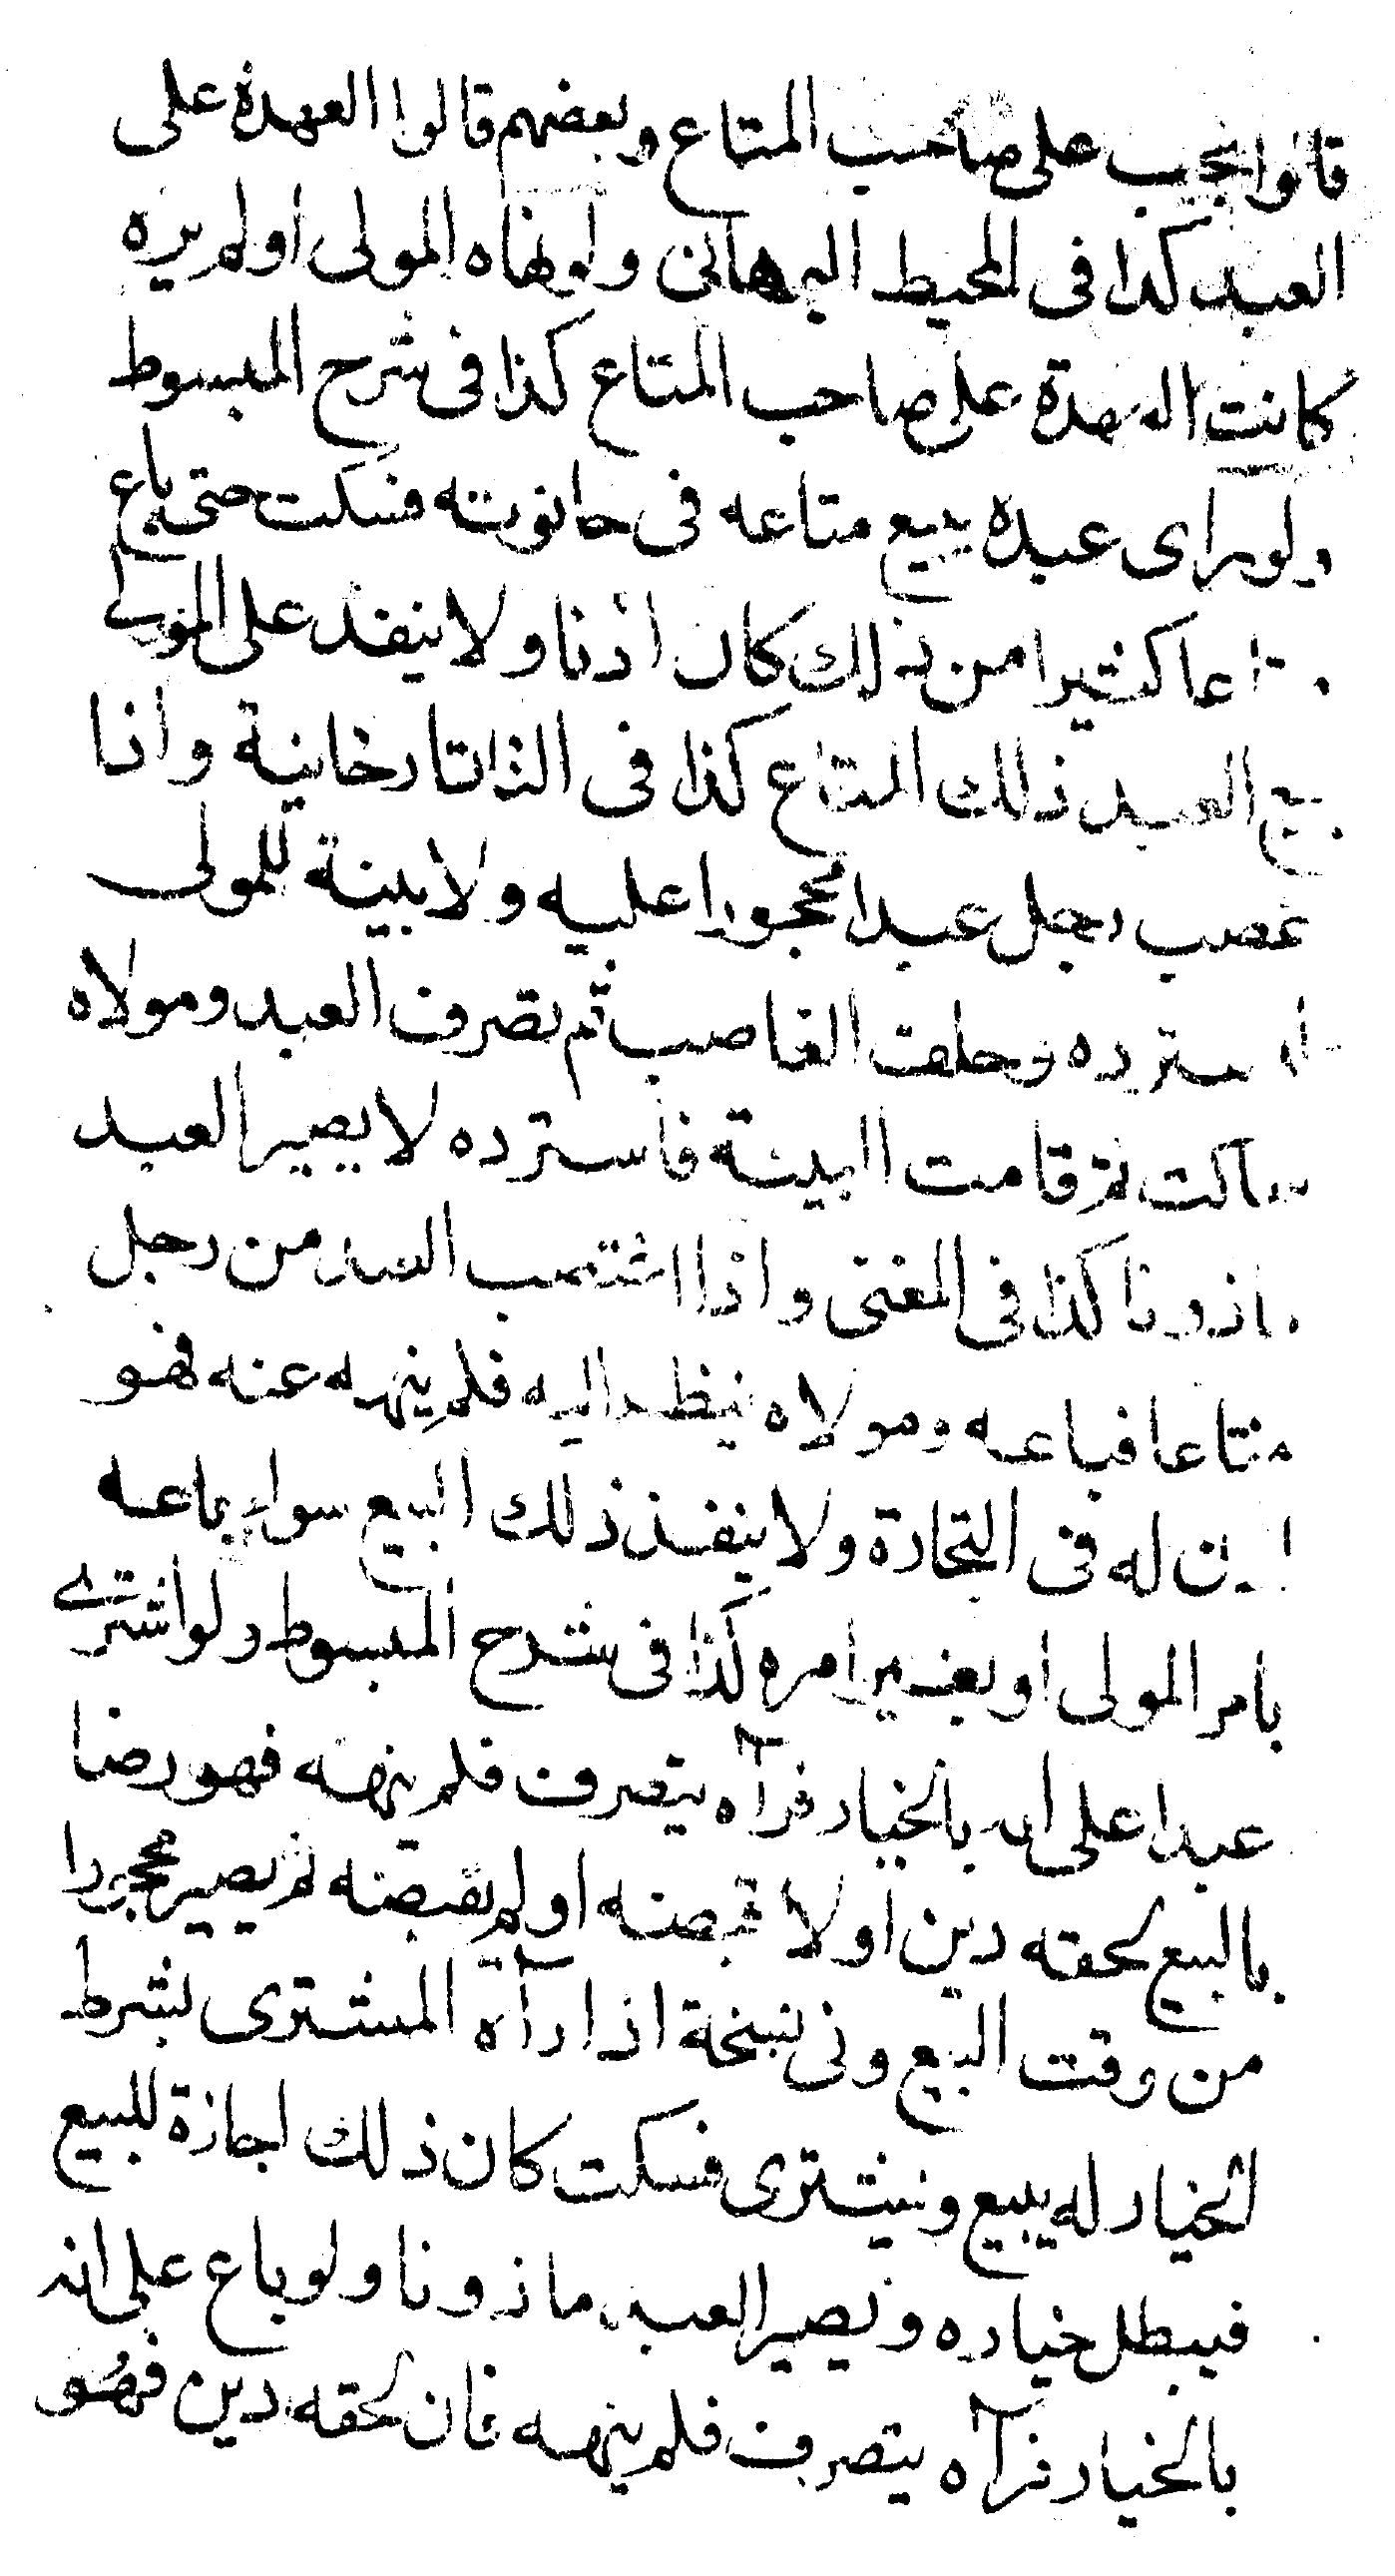 قالوا تجب على صاحب المتاع وبعضهم قالوا العهدة على
العبد كذا فى المحيط البرهانى ولو نهاه المولى او لم يره
كانت العهدة على صاحب المتاع كذا فى شرح المبسوط
ولو راى عبده يبيع متاعه فى حانوته فسكت حتى باع
متاعا كثيرا من ذلك كان اذنا ولا ينفذ على المولى
بيع العبد ذلك المتاع كذا فى التاتارخانية واذا
غصب رجل عبدا محجورا عليه ولا بينة للمولى
سترده وحلف الغاصب ثم تصرف العبد ومولاه
ساكت ثم قامت البينة فاسترده لا يصير العبد
ماذونا كذا فى المغنى واذا اغتصب العبد من رجل
متاعا فباعه ومولاه ينظر اليه فلم ينهه عنه فهو
اذن له فى التجارة ولا ينفذ ذلك البيع سواء باعه
بامر المولى او بغير امره كذا فى شرح المبسوط ولو اشترى
عبدا على انه بالخيار فرآه يتصرف فلم ينهه فهو رضا
بالبيع لحقه دين او لا قبضه او لم يقبضه ثم يصير محجورا
من وقت البيع وفى نسخة اذا رآه المشترى بشرط
الخيار له يبيع ويشترى فسكت كان ذلك اجازة للبيع
فيبطل خياره ويصير العبد ماذونا ولو باع على انه
بالخيار فرآه يتصرف فلم ينهه فان لحقه دين فهو